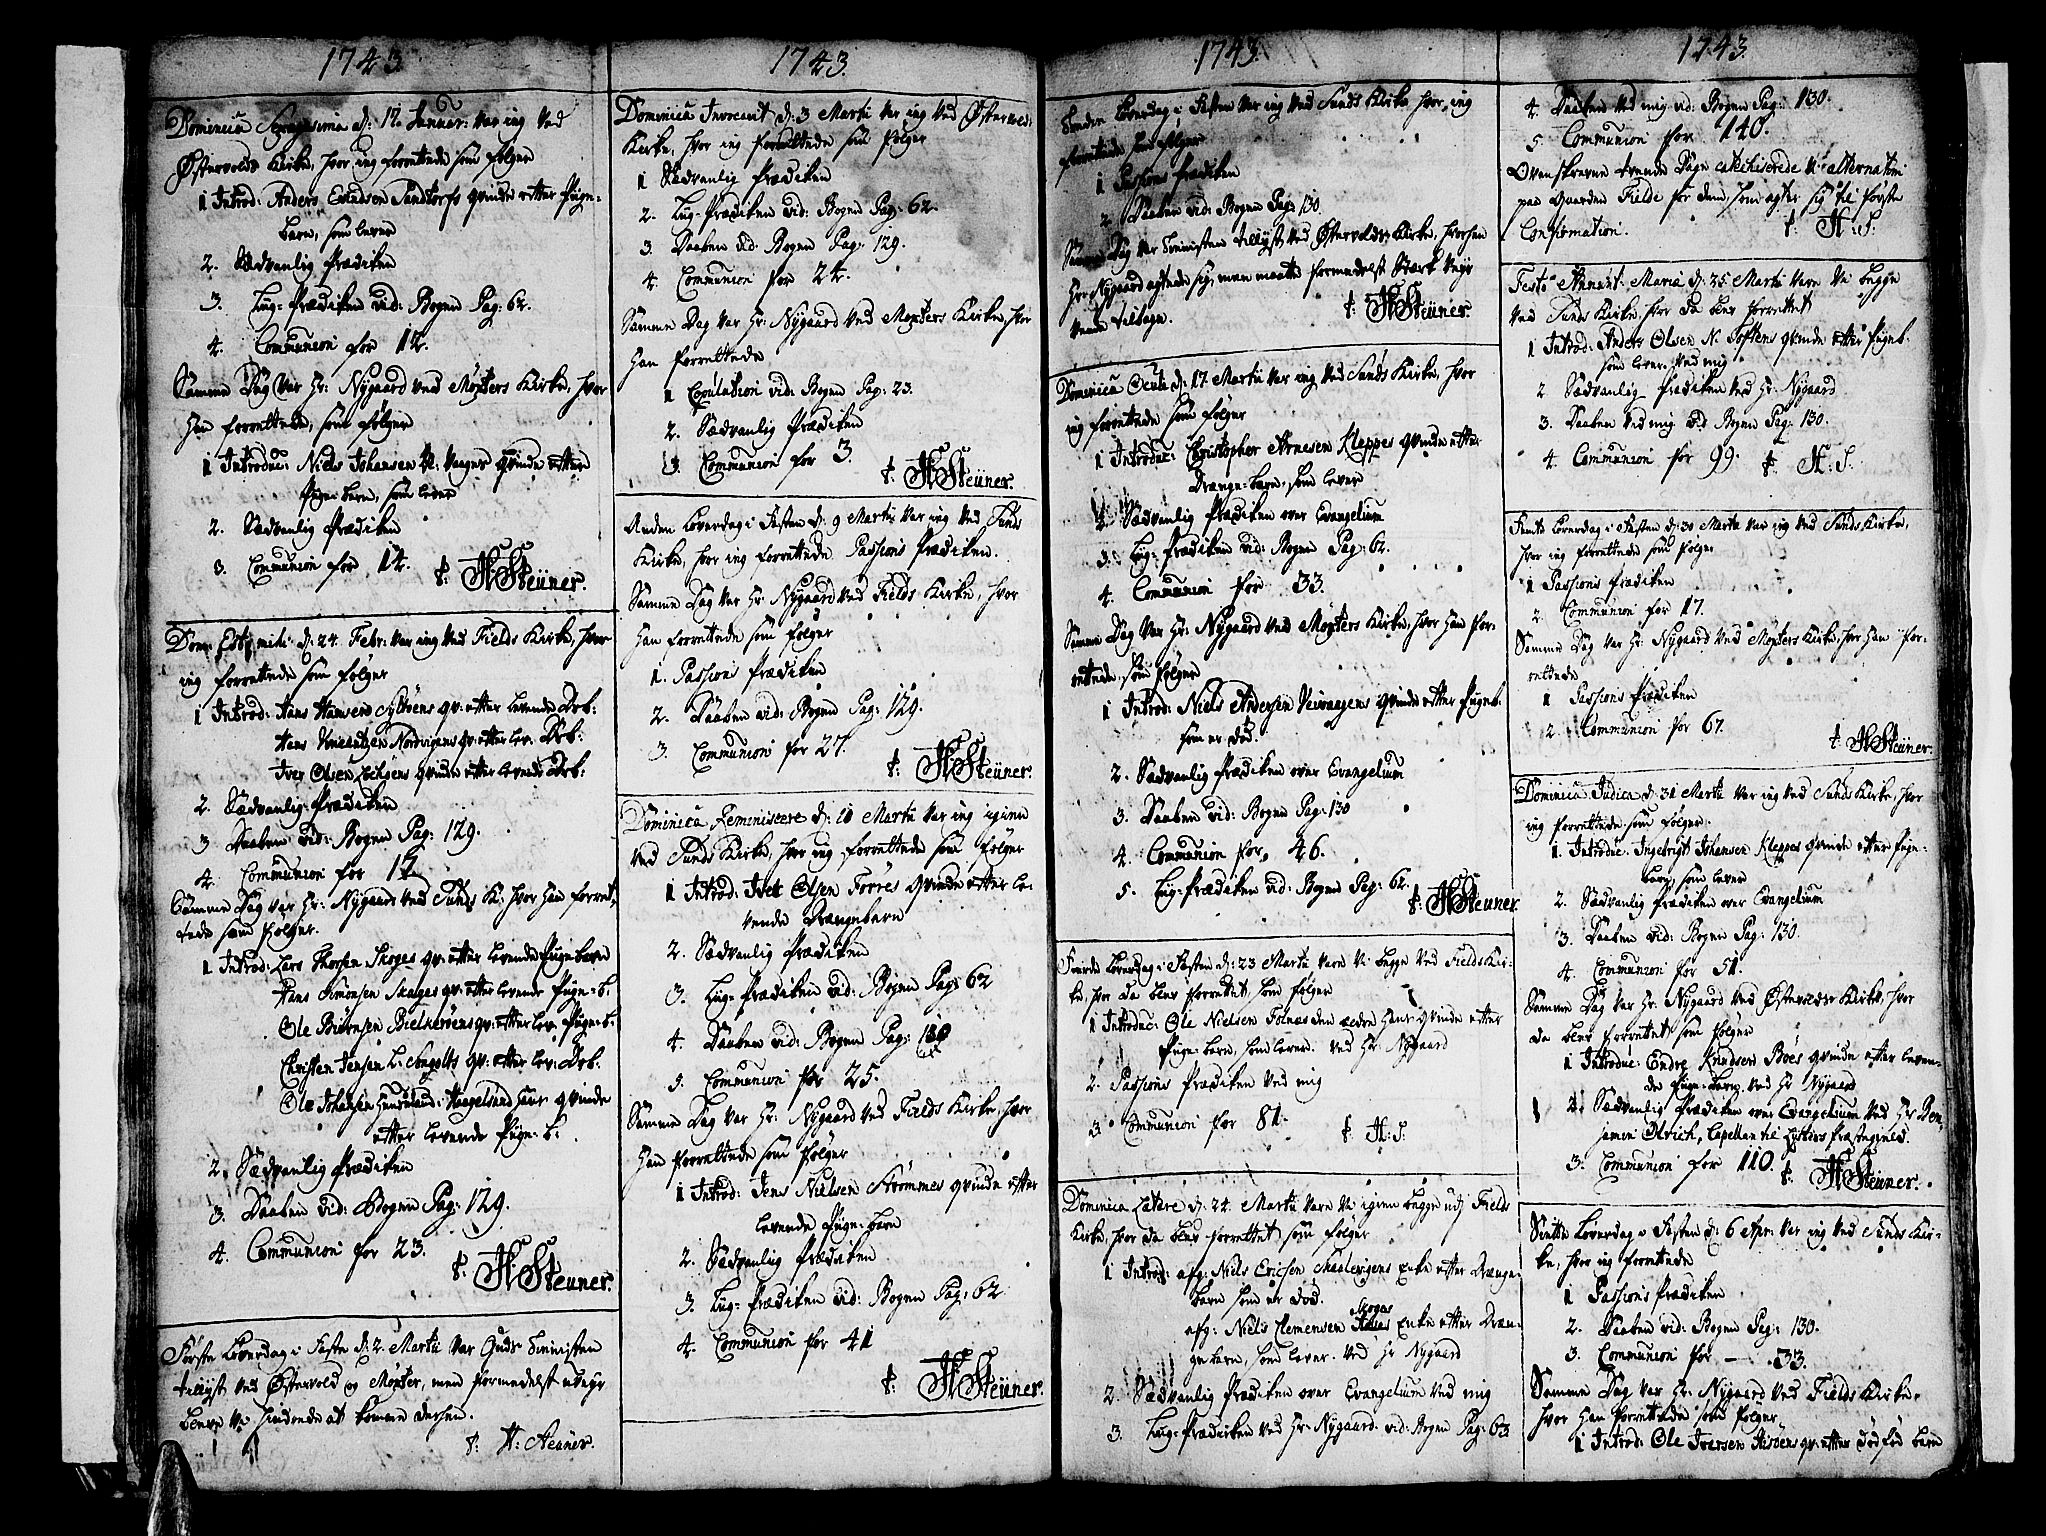 1743
Dominica Septuagesima d: 17. Januar: var ieg ved
Østervolds Kirke, hvor ieg forrettede som følger
1 Introd: Anders Sandtorfs qvinde efter Pige-
barn, som lever
2. Sædvanlig Prædiken
3. Liig-Prædiken vid: Bogen Pag: 62.
4. Communion for 12.
Samme Dag var Hr: Nygaard ved Møgters Kirke, hvor
han forrettede, som følger
1 Introduc: Niels Johansen qvinde efter
Pigebarn, som lever
2. Sædvanlig Prædiken
3. Communion for 12. t: H Steüner.
Dom: Estomihi: d: 24. Febr: var ieg ved Fields Kirke, hvor
ieg forrettede som følger
1 Introd: Hans Hansens qv: efter levende Drb:
Hans Nordvigens qv: efter lev: Drb:
Iver Olsen qvinde efter levende Drb:
2. Sædvanlig Prædiken
3 Daaben vid: Bogen Pag: 129.
4. Communion for 12
Samme Dag var Hr: Nygaard ved Sunds K: hvor han forret-
tede som følger.
1 Introd: Lars Thorsen Skoges qv: efter levende Pigebarn
Hans Simonsen Skalges qv: efter levende Pige-b:
Ole Biørnsen Bielkerøens qv: efter lev: Pige-b:
Christen Jensen L: Angelts qv: efter lev: Drb:
Ole Johansen Haagelsund Hans qvinde
efter levende Pige-b:
2. Sædvanlig Prædiken
3. Daaben vid: Bogen Pag: 129.
4. Communion for 23. t: H Steüner.
Første Løverdag i Faste d: 2. Martii var Guds Tienisten
tillyst ved Østervold og Møgter, men formedelst uveyr
bleve vi hindrede at komme derhen.
t: H: Steüner.
1743.
Dominica Invocavit d: 3 Martii var ieg ved Østervolds
Kirke, hvor ieg forrettede som følger
1 Sædvanlig Prædiken
2. Liig-Prædiken vid: Bogen Pag: 62.
3. Daaben vid: Bogen Pag: 129.
4. Communion for 24.
Samme Dag var Hr: Nygaard ved Møgters Kirke, hvor
han forrettede
1 Copulation vid: Bogen Pag: 23.
2. Sædvanlig Prædiken
3. Communion for 3. t: H Steüner.
Anden Løverdag i Fasten d: 9 Martii var ieg ved Sunds
Kirke, hvor ieg forrettede Passions Prædiken.
Samme Dag var Hr: Nygaard ved Fields Kirke, hvor
han forrettede som følger
1. Passions Prædiken
2. Daaben vid: Bogen Pag: 129.
3. Communion for 27. t: H Steüner.
Dominica Reminiscere d: 10 Martii var ieg igien
ved Sunds Kirke, hvor ieg forrettede som følger
1 Introd: Ivet Olsen Torres qvinde efter le-
vende Drengebarn
2. Sædvanlig Prædiken
3. Liig-Prædiken vid: Bogen Pag: 62
4. Daaben vid: Bogen Pag:
5. Communion for 25.
Samme Dag var Hr: Nygaard ved Fields Kirke, hvor
han forrettede som følger
1 Introd: Jens Nielsen Strømmes qvinde efter
levende Pige-barn
2. Sædvanlig Prædiken
3. Liig-Prædiken vid: Bogen Pag: 62
4. Communion for 41
t: H Steüner.
1743.
Tredie Løverdag i Fasten var ieg ved Sunds Kirke, hvor ieg
forrettede som følger
1 Passions Prædiken
2. Daaben vid: Bogen Pag: 130.
Samme Dag var Tienisten tillyst ved Østervolds Kirke, hvorhen
Hr: Nygaard agtede sig, men maatte formedelst Stærk Veyr
vende tilbage. t: H Steüner.
Dominica Oculi d: 17. Martii var ieg ved Sunds Kirke, hvor
ieg forrettede som følger
1 Introduc: Christopher Arnesen Kleppes qvinde efter
Drenge-barn, som lever
2. Sædvanlig Prædiken over Evangelium
3. Liig-Prædiken vid: Bogen Pag: 62.
4. Communion for 33.
Samme Dag var Hr: Nygaard ved Møgters Kirke, hvor han for-
rettede, som følger
1 Introd: Niels Andersen Veivaagens qvinde efter Pigeb:
som er død.
2. Sædvanlig Prædiken over Evangelium
3. Daaben vid: Bogen Pag: 130
4. Communion for 46.
5. Liig-Prædiken vid: Bogen Pag: 62.
t: H Steuner
Fierde Løverdag i Fasten d: 23 Martii vare vi begge ved Fields Kir-
ke, hvor da blev forrettet, som følger
1 Introduc: Ole Nielsen Folnæs den ældre Hans qvinde efter
Pige-barn, som lever. ved Hr: Nygaard
2. Passions Prædiken ved mig
3. Communion for 81. t: H: S.
Dominica Lætare d: 24. Martii vare vi igien begge ved Fields
Kirke, hvor da blev forrettet som følger
1 Introd: afg: Niels Ericsen Enke efter Drænge-
barn som er død.
afg: Niels Clemensen Skoges Enke efter Dræn-
gebarn, som lever. ved Hr Nygaard
2. Sædvanlig Prædiken over Evangelium ved mig
3. Liig-Prædiken ved Hr: Nygaard vid: Bogen Pag: 63
1743.
4. Daaben ved mig vid: Bogen Pag: 130.
5. Communion for 140.
Ovenskrevne tvende Dage catechiserede vi alternatim
paa Gaarden Field for dem, som agter sig til første
Confirmation. t: H: S.
Festo Annunt: Mariæ d: 25 Martii vare vi begge
ved Sunds Kirke, hvor da blev forrettet
1 Introd: Anders Olsen N: Toftens qvinde efter Pigeb:
som lever. ved mig
2 Sædvanlig Prædiken ved Hr: Nygaard
3. Daaben ved mig vid Bogen Pag: 130.
4. Communion for 99. t: H: S.
Femte Løverdag i Fasten d: 30 Martii var ieg ved Sunds Kirke,
hvor ieg forrettede som følger
1 Passions Prædiken
2. Communion for 17.
Samme Dag var Hr: Nygaard ved Møgters Kirke, hvor han for-
rettede
1 Passions Prædiken
2. Communion for 67. t: H Steüner.
Dominica Judica d: 31 Martii var ieg ved Sunds Kirke, hvor
ieg forrettede som følger.
1. Introduc: Ingebrigt Johansen Kleppes qvinde efter Pige-
barn, som lever
2. Sædvanlig Prædiken over Evangelium
3. Daaben vid: Bogen Pag: 130.
4. Communion for 51.
Samme Dag var Hr: Nygaard ved Østervolds Kirke, hvor
da blev forrettet som følger
1 Introduc: Endre Knudsen Bøes qvinde efter leven-
de Pige-barn ved Hr Nygaard
2. Sædvanlig Prædiken over Evangelium ved Hr Ben-
jamin Olrich, Capellan til Lysters Præstegield.
3. Communion for 110. t: H Steüner.
Siette Løverdag i Fasten d: 6 Apr: var ieg ved Sunds Kir-
ke, hvor ieg forrettede
1 Passions Prædiken
2. Daaben vid: Bogen Pag: 130.
3. Communion for — 33.
Samme Dag var Hr: Nygaard ved Fields Kirke,
hvor han forrettede som følger
1 Introd: Ole Iversen qv: efter dødfød barn